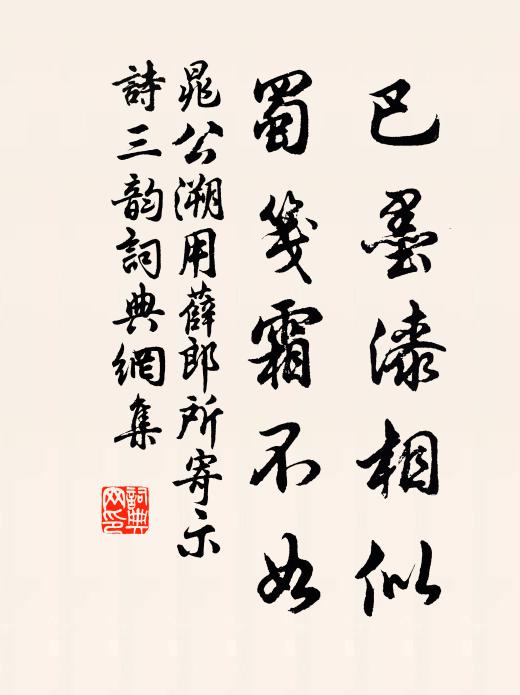 巴墨漆相似
蜀笺霜不如
晁公溯用薛郎所寄示
詩三韵詞典網集
詞典网印